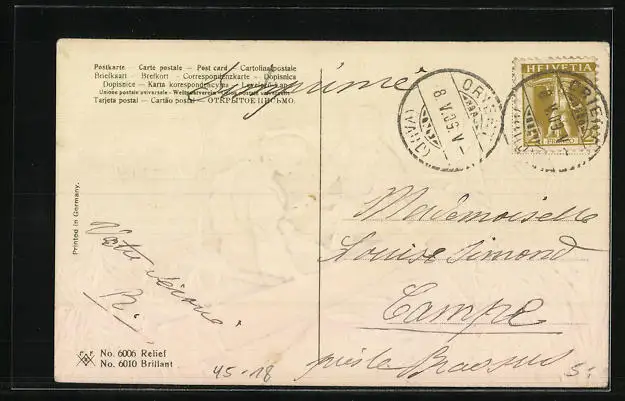 Postkarte — Carte postale — Post card — Cartolina postale
Brielkaart — Brefkort — Correspondenzkarte — Dopisnica
Dopisnice — Karta korespondencyjna — Levelező-Lap
Unione postale universale — Weltpostverein — Union postale universelle
Tarjeta postal — Cartão postal — ОТКРЫТОЕ ПИСЬМО.
Imprimé
HELVETIA
ORIENT
8 V.09.V
(VAUD)
Printed in Germany.
Mademoiselle
Louise Simond
Campe
près le Brassus
Votre
R.
No. 6006 Relief
No. 6010 Brillant
45-18